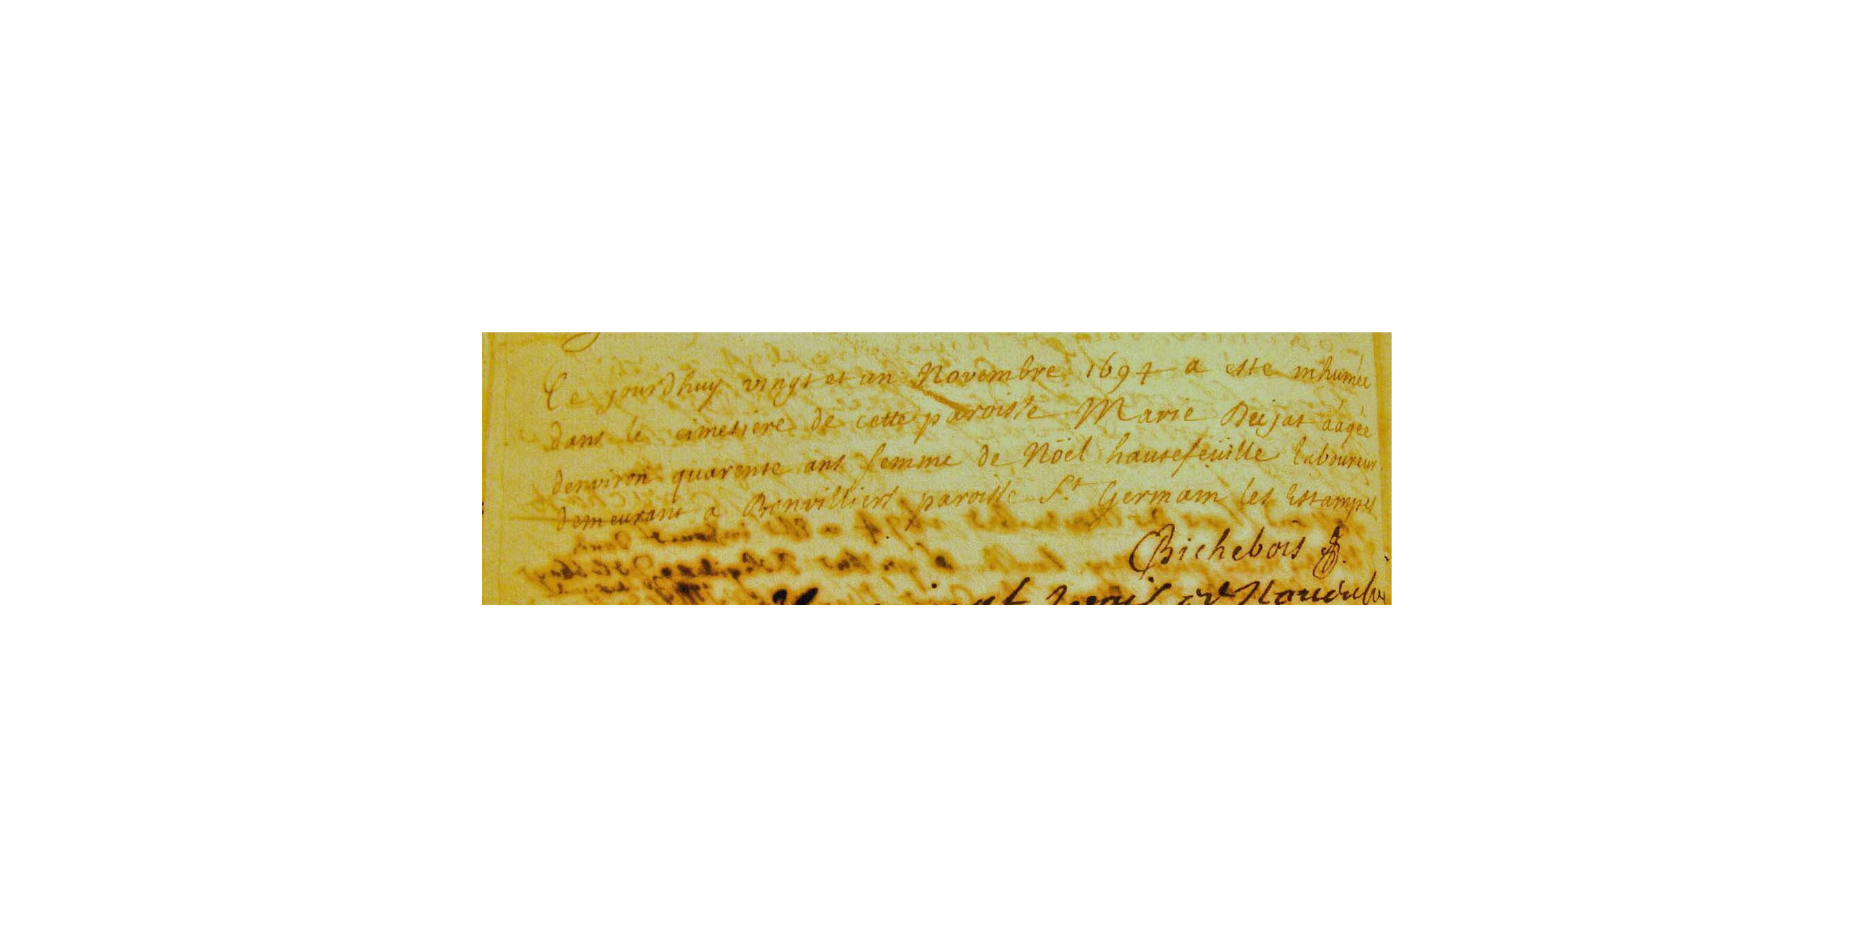 Ce jourdhuy vingt et un Novembre 1694 a este inhumée
dans le cimetiere de cette paroisse Marie Dujat aagée
denviron quarente ans femme de Nöel hautefeüille laboureur
demeurant a Bonvilliers paroisse St Germain les Estampes
Bichebois